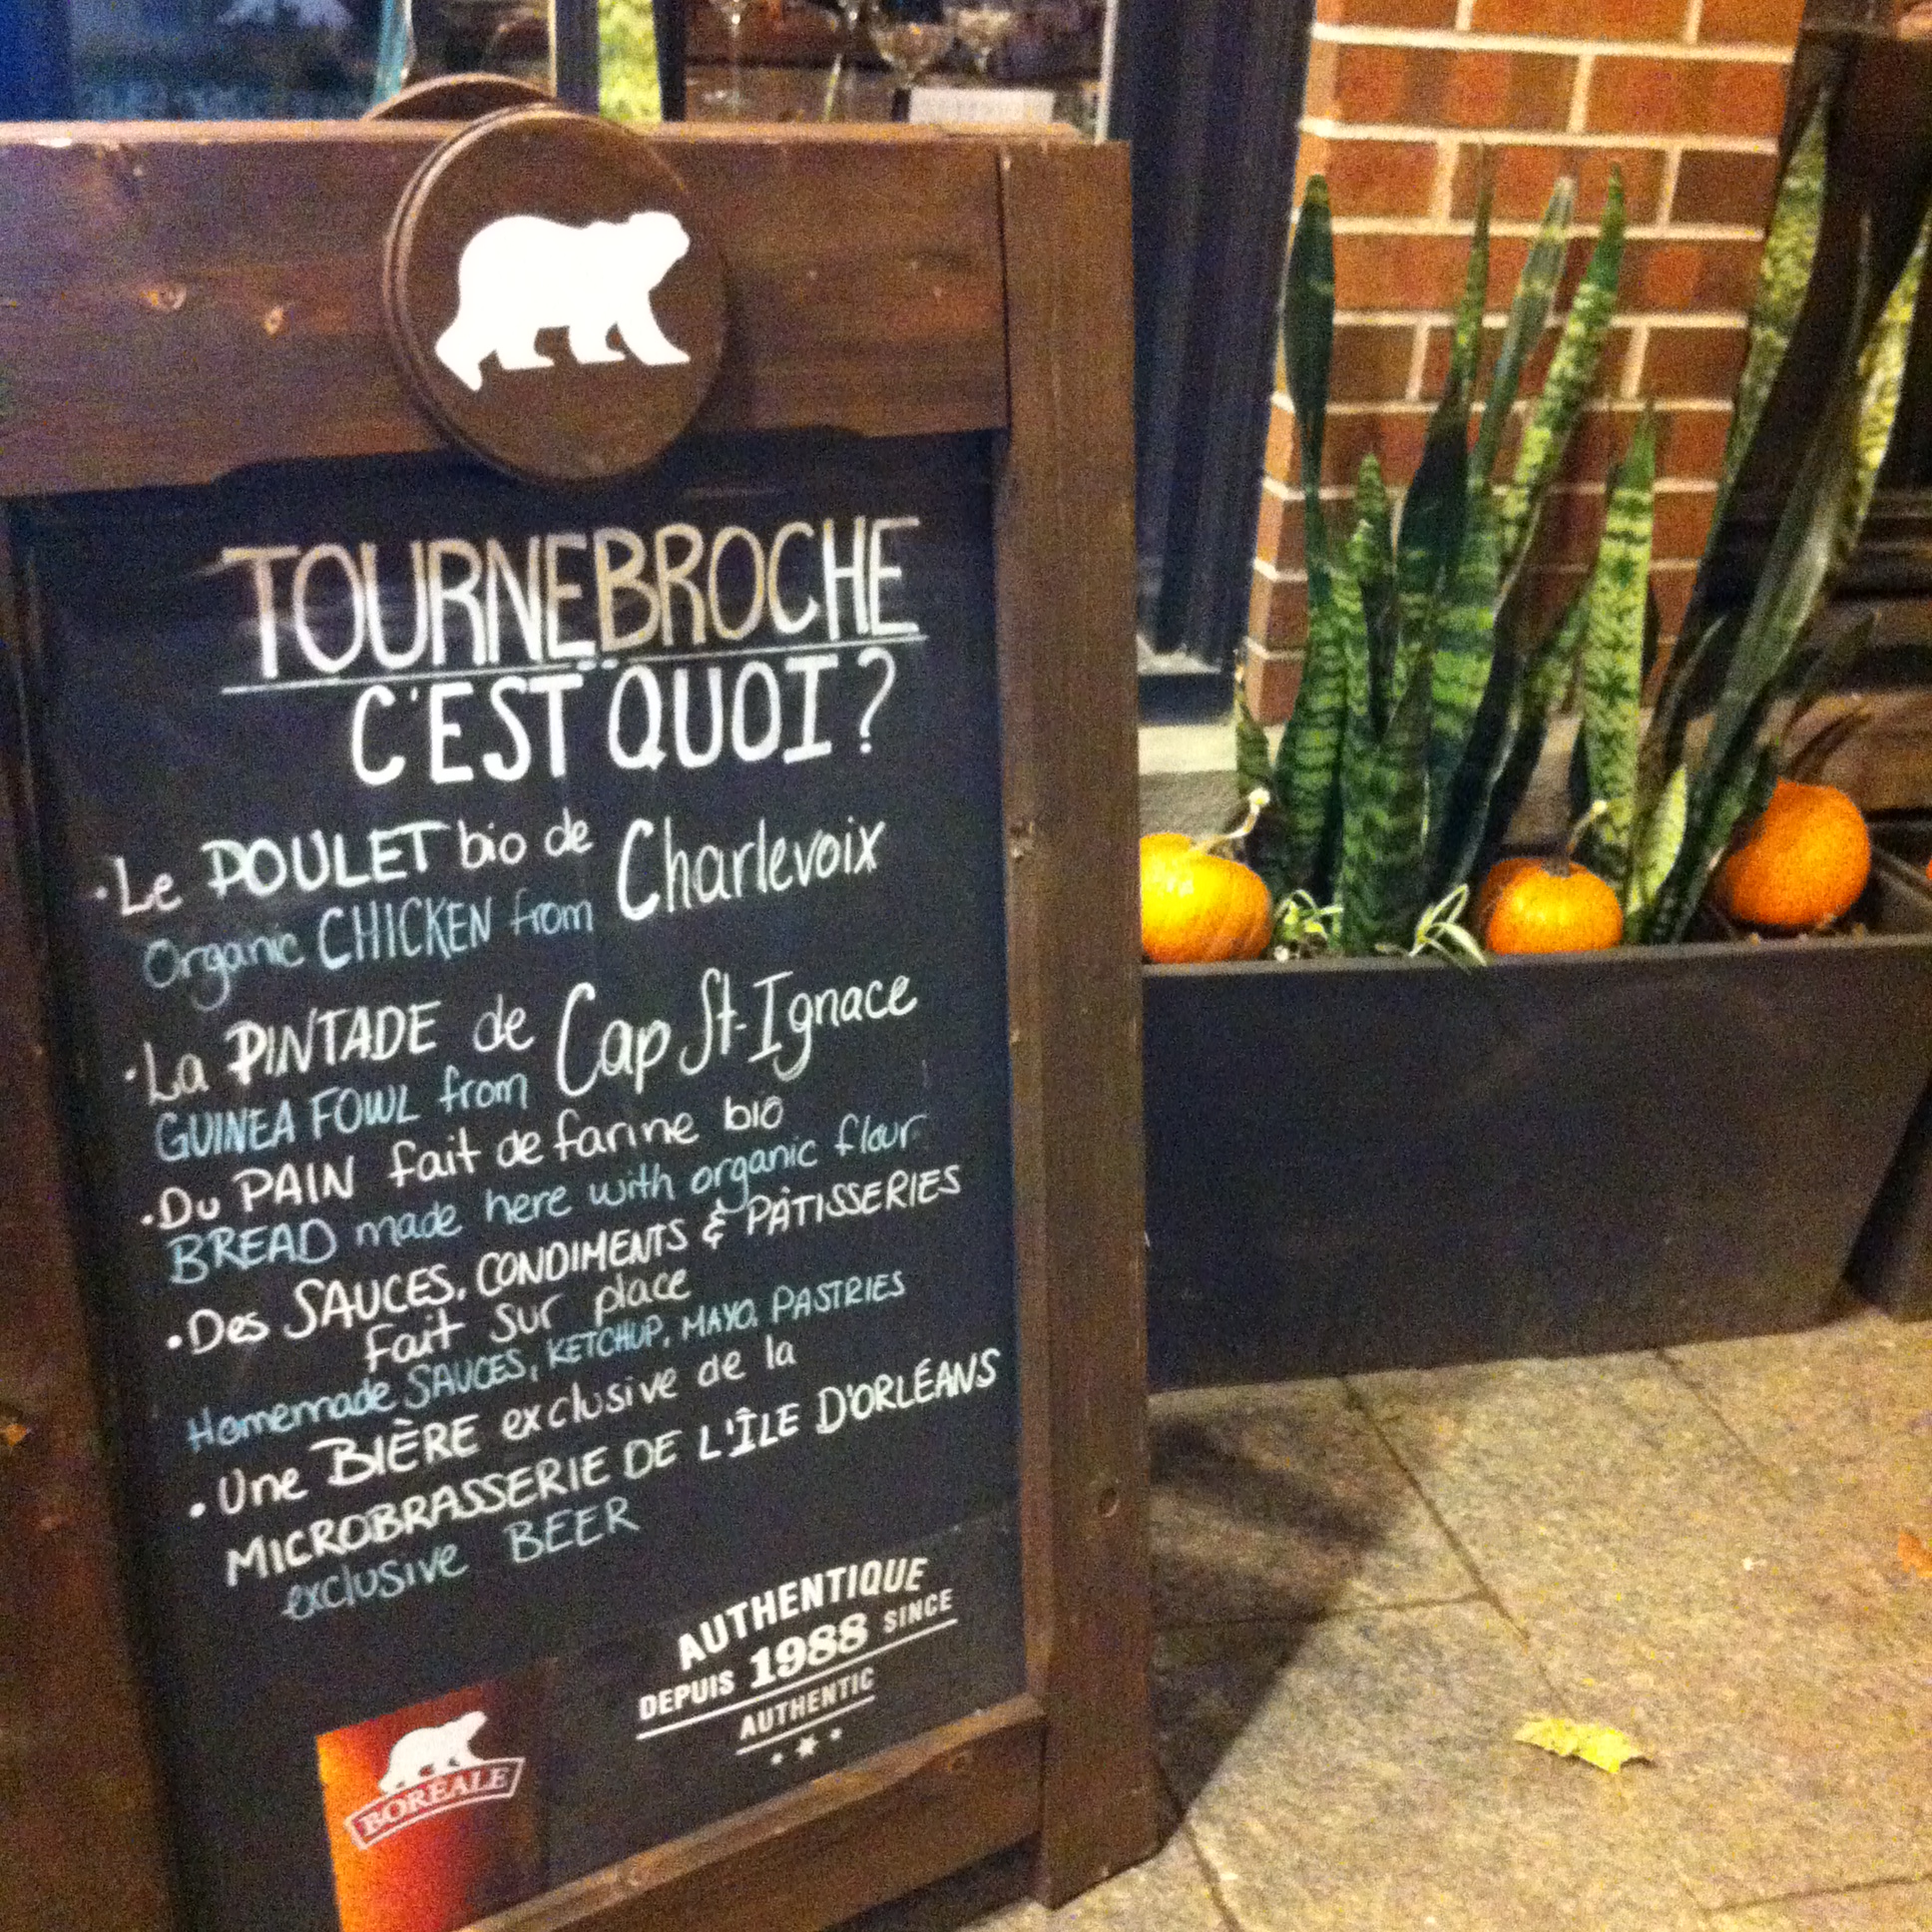 TOURNEBROCHE
C'EST QUOI?
• Le POULET bio de Charlevoix
Organic CHICKEN from
• La PINTADE de Cap St-Ignace
GUINEA FOWL from
• Du PAIN fait de farine bio
BREAD made here with organic flour
• Des SAUCES, CONDIMENTS & PÂTISSERIES
fait sur place
Homemade SAUCES, KETCHUP, MAYO, PASTRIES
• Une BIÈRE exclusive de la
MICROBRASSERIE DE L'ÎLE D'ORLÉANS
exclusive BEER
AUTHENTIQUE
DEPUIS 1988 SINCE
AUTHENTIC
BORÉALE